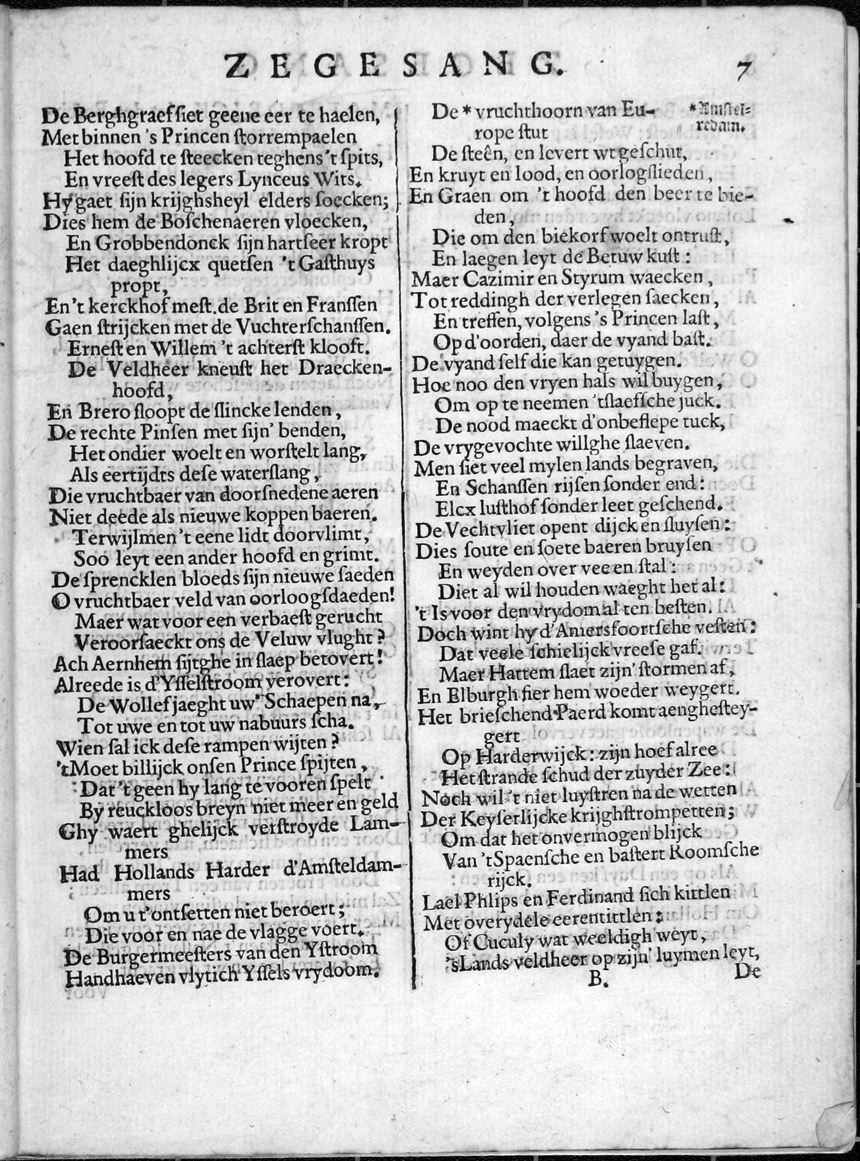 ZEGESANG. 7
De Berghgraef siet geene eer te haelen,
Met binnen 's Princen storrempaelen
Het hoofd te steecken teghens 't spits,
En vreest des legers Lynceus Wits.
Hy gaet sijn krijghsheyl elders soecken;
Dies hem de Boschenaeren vloecken,
En Grobbendonck sijn hartseer kropt
Het daeghlijcx quetsen 't Gasthuys
propt,
En 't kerckhof mest. de Brit en Franssen
Gaen strijcken met de Vuchterschanssen.
Ernest en Willem 't achterst klooft.
De Veldheer kneust het Draecken-
hoofd,
En Brero sloopt de slincke lenden,
De rechte Pinsen met sijn' benden,
Het ondier woelt en worstelt lang,
Als eertijdts dese waterslang,
Die vruchtbaer van doorsnedene aeren
Niet deede als nieuwe koppen baeren.
Terwijlmen 't eene lidt doorvlimt,
Soo leyt een ander hoofd en grimt.
De sprencklen bloeds sijn nieuwe saeden
O vruchtbaer veld van oorloogsdaeden!
Maer wat voor een verbaest gerucht
Veroorsaeckt ons de Veluw vlught?
Ach Aernhem sijtghe in slaep betovert!
Alreede is d'Ysselstroom verovert:
De Wollef jaeght uw' Schaepen na,
Tot uwe en tot uw nabuurs scha.
Wien sal ick dese rampen wijten?
'tMoet billijck onsen Prince spijten,
Dat 't geen hy lang te vooren spelt
By reuckloos breyn niet meer en geld
Ghy waert ghelijck verstroyde Lam-
mers
Had Hollands Harder d'Amsteldam-
mers
Om u t'ontsetten niet beroert;
Die voor en nae de vlagge voert.
De Burgermeesters van den Ystroom
Handhaeven vlytich Yssels vrydoom.
De * vruchthoorn van Eu-
rope stut
*Amstel-
redam.
De steên, en levert wt geschut,
En kruyt en lood, en oorlogslieden,
En Graen om 't hoofd den beer te bie-
den,
Die om den biekorf woelt ontrust,
En laegen leyt de Betuw kust:
Maer Cazimir en Styrum waecken,
Tot reddingh der verlegen saecken,
En treffen, volgens 's Princen last,
Op d'oorden, daer de vyand bast.
De vyand self die kan getuygen.
Hoe noo den vryen hals wil buygen,
Om op te neemen 'tslaefsche juck.
De nood maeckt d'onbeslepe tuck,
De vrygevochte willghe slaeven.
Men siet veel mylen lands begraven,
En Schanssen rijsen sonder end:
Elcx lusthof sonder leet geschend.
De Vechtvliet opent dijck en sluysen:
Dies soute en soete baeren bruysen
En weyden over vee en stal:
Diet al wil houden waeght het al:
't Is voor den vrydom al ten besten.
Doch wint hy d'Amersfoortsche vesten:
Dat veele schielijck vreese gaf.
Maer Hattem slaet zijn' stormen af,
En Elburgh fier hem woeder weygert.
Het brieschend Paerd komt aenghestey-
gert
Op Harderwijck: zijn hoef alree
Het strande schud der zuyder Zee:
Noch wil 't niet luystren na de wetten
Der Keyserlijcke krijghstrompetten;
Om dat het onvermogen blijck
Van 't Spaensche en bastert Roomsche
rijck.
Lael Phlips en Ferdinand sich kittlen
Met overydele eerentittlen:
Of Cuculy wat weeldigh weyt,
'sLands veldheer op zijn' luymen leyt,
B. De